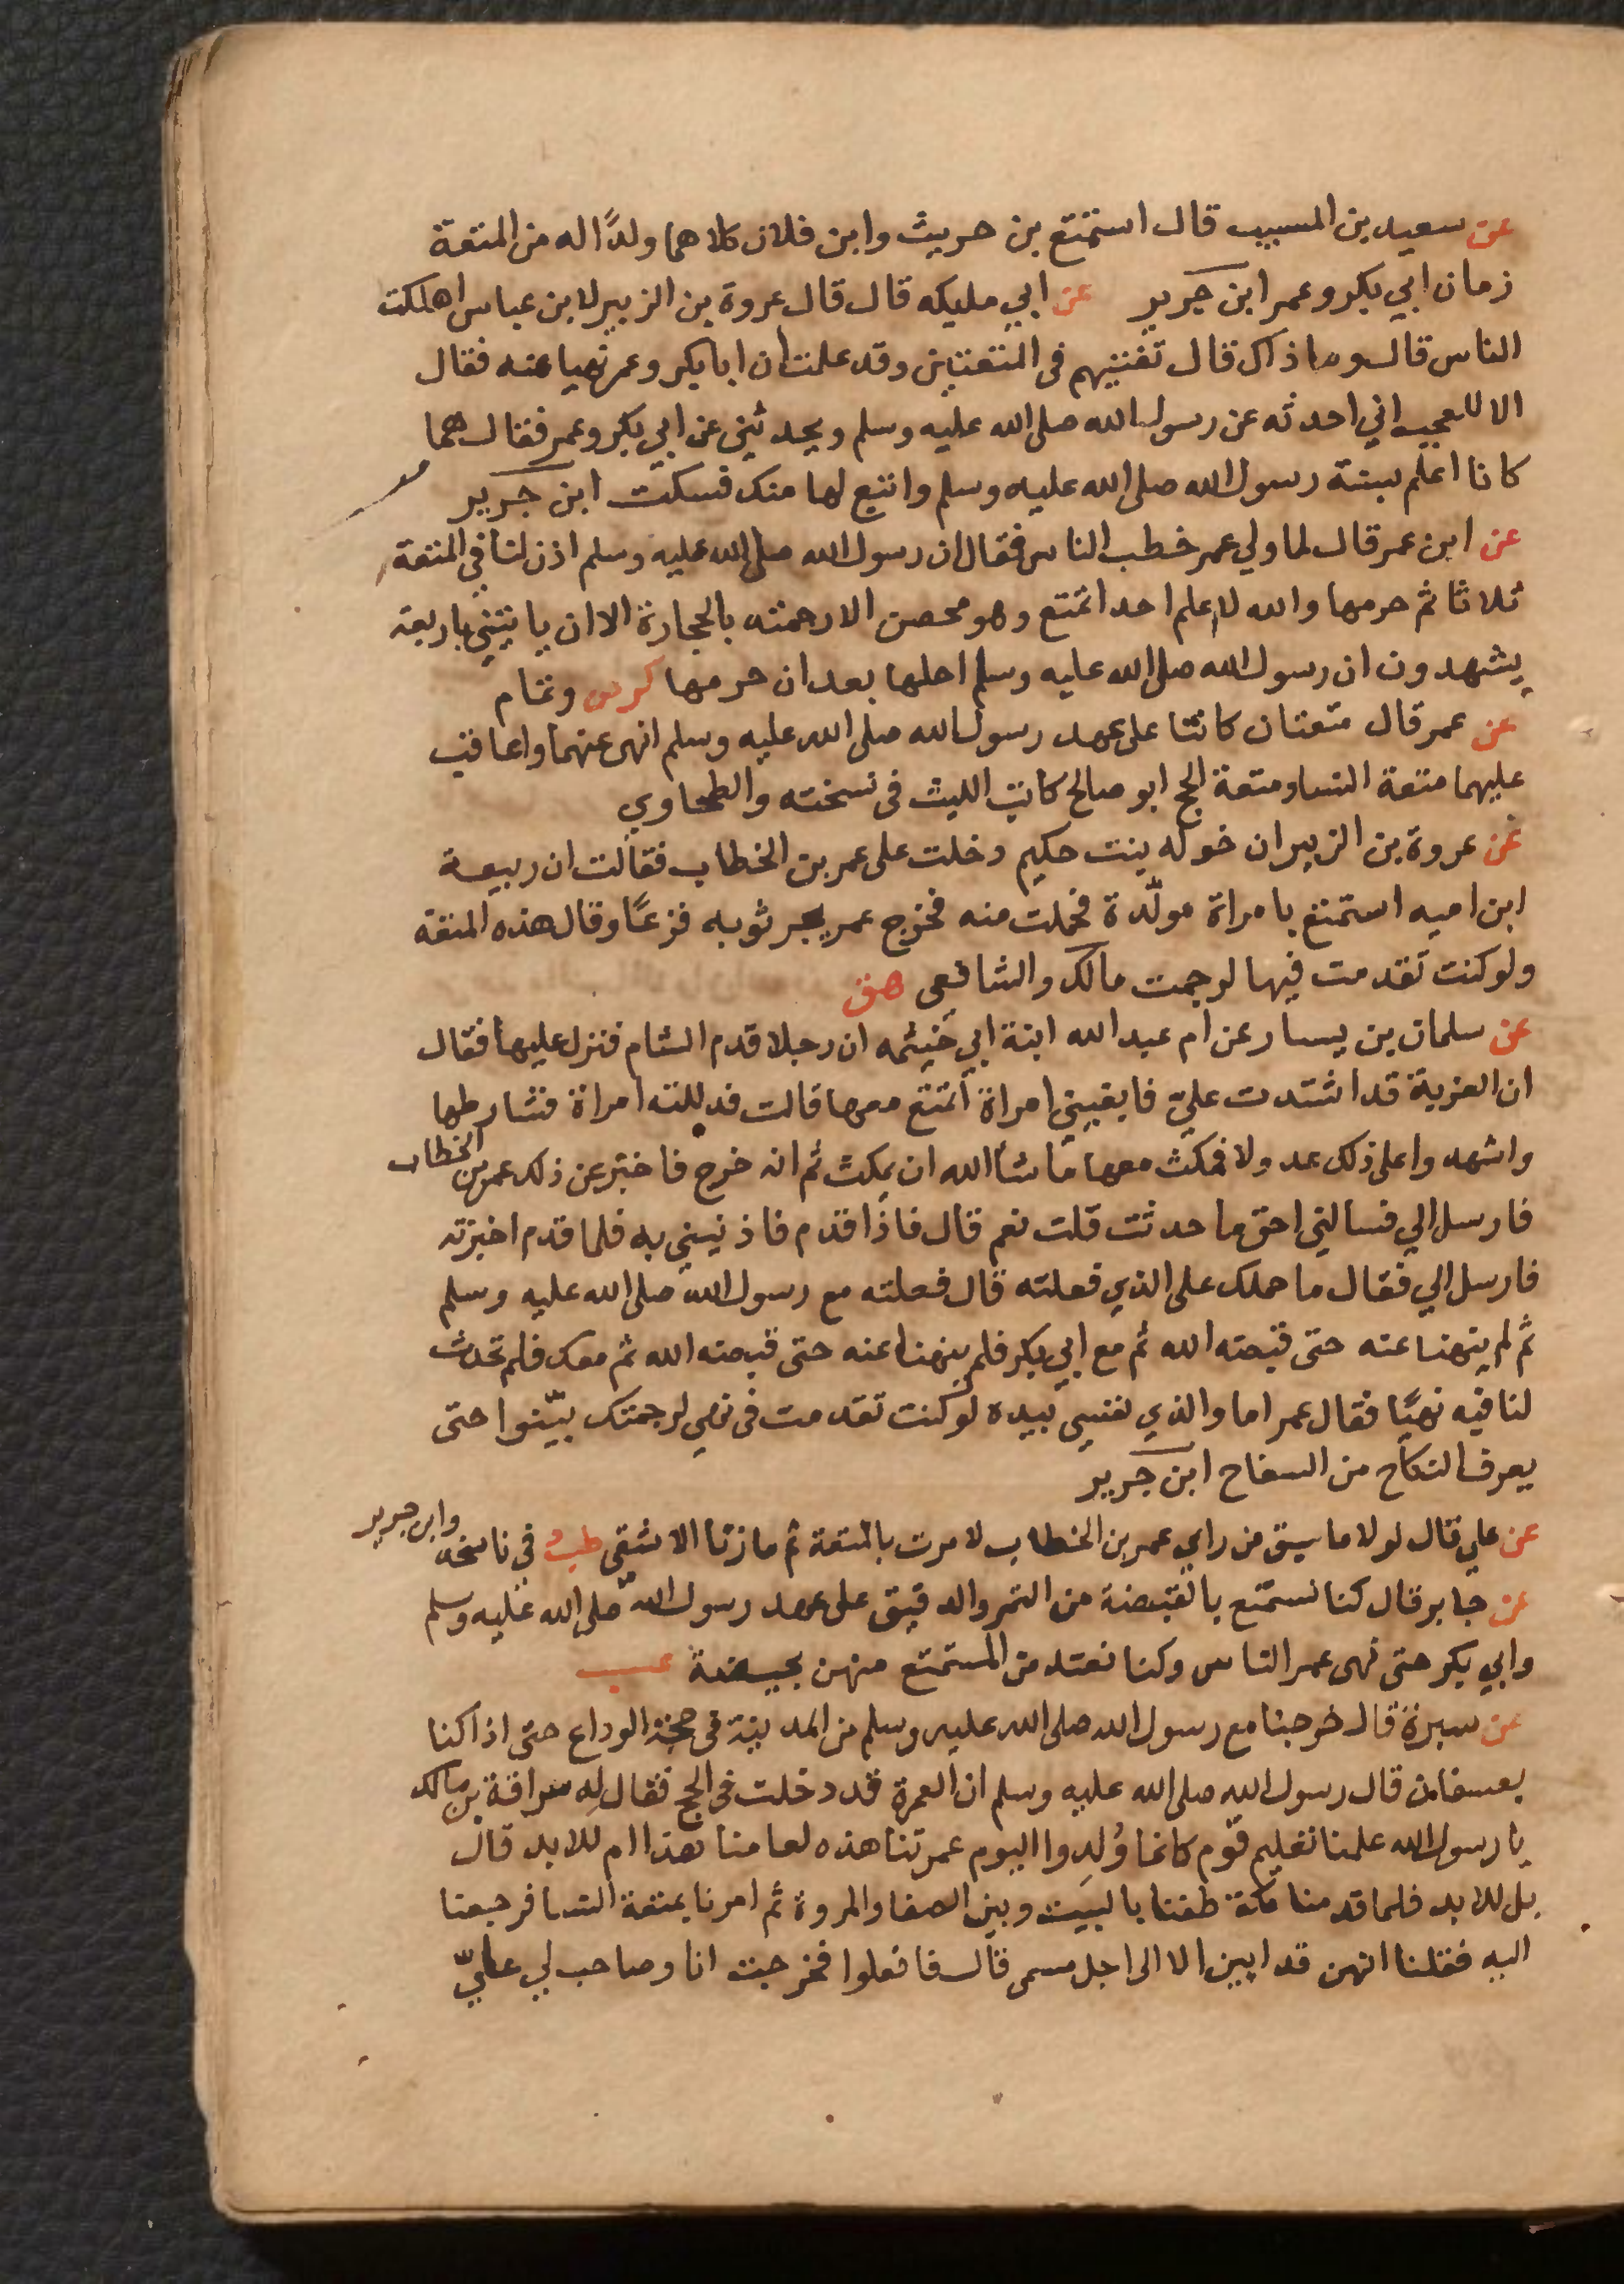 عن سعيد بن المسيب قال استمتع بن حريث وابن فلان كلاهما ولدًا له من المتعة
زمان ابي بكر وعمر ابن جرير عن ابي مليكه قال قال عروة بن الزبير لابن عباس اهلكت
الناس قال وما ذاك قال تفتيهم في المتعتين وقد علمت ان ابا بكر وعمر نهيا عنه فقال
الا للعجب اني احدثه عن رسول الله صلى الله عليه وسلم ويحدثني عن ابي بكر وعمر فقال هما
كانا اعلم بسنة رسول الله صلى الله عليه وسلم واتبع لها منك فسكت ابن جرير
عن ابن عمر قال لما ولي عمر خطب الناس فقال ان رسول الله صلى الله عليه وسلم اذن لنا في المتعة
ثلاثا ثم حرمها والله لا اعلم احدا تمتع وهو محصن الا رجمته بالحجارة الا ان ياتيني باربعة
يشهدون ان رسول الله صلى الله عليه وسلم احلها بعد ان حرمها كر وتمام
عن عمر قال متعتان كانتا على عهد رسول الله صلى الله عليه وسلم انهى عنهما واعاقب
عليهما متعة النسا ومتعة الحج ابو صالح كاتب الليث في نسخته والطحاوي
عن عروة بن الزبير ان خوله بنت حكيم دخلت على عمر بن الخطاب فقالت ان ربيعة
ابن اميه استمتع بامراة مولّدة فحملت منه فخرج عمر يجر ثوبه فزعًا وقال هذه المتعه
ولو كنت تقدمت فيها لرجمت مالك والشافعي هق
عن سلمان بن يسار عن ام عبد الله ابنة ابي خيثمه ان رجلا قدم الشام فنزل عليها فقال
ان العزبة قد اشتدت عليّ فابغيني امراة اتمتع معها قالت فدللته امراة فشارطها
واشهدوا على ذلك عدولا فمكث معها ما شا الله ان يمكث ثم انه خرج فاخبر عن ذلك عمر بن الخطاب
فارسل الي فسالني احق ما حدثت قلت نعم قال فاذا قدم فاذنيني به فلما قدم اخبرته
فارسل الي فقال ما حملك على الذي فعلته قال فعلته مع رسول الله صلى الله عليه وسلم
ثم لم ينهنا عنه حتى قبضه الله ثم مع ابي بكر فلم ينهنا عنه حتى قبضه الله ثم معك فلم تحدث
لنا فيه نهيًا فقال عمر اما والذي نفسي بيده لو كنت تقدمت في نهي لرجمتك بيّنوا حتى
يعرف النكاح من السفاح ابن جرير
عن علي قال لولا ما سبق من راي عمر بن الخطاب لامرت بالمتعة ثم ما زنا الا شقي في ناسخه وابن جرير
عن جابر قال كنا نستمتع بالقبضة من التمر والدقيق على عهد رسول الله صلى الله عليه وسلم
وابي بكر حتى نهى عمر الناس وكنا نعتد من المستمتع منهن بحيضة عب
عن سبرة قال خرجنا مع رسول الله صلى الله عليه وسلم من المدينة في حجة الوداع حتى اذا كنا
بعسفان قال رسول الله صلى الله عليه وسلم ان العمرة قد دخلت في الحج فقال له سراقة بن مالك
يا رسول الله علمنا تعليم قوم كانما وُلِدوا اليوم عمرتنا هذه لعامنا هذا ام للابد قال
بل للابد فلما قدمنا مكة طفنا بالبيت وبين الصفا والمروة ثم امرنا بمتعة النسا فرجعنا
اليه فقلنا انهن قد ابين الا الى اجل مسمى قال فافعلوا فخرجت انا وصاحب لي عليّ